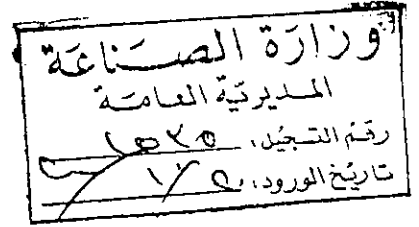 وزارة الصناعة
المديرية العامة
رقم التسجيل: ١٥٣٥
تاريخ الورود: ١/٥